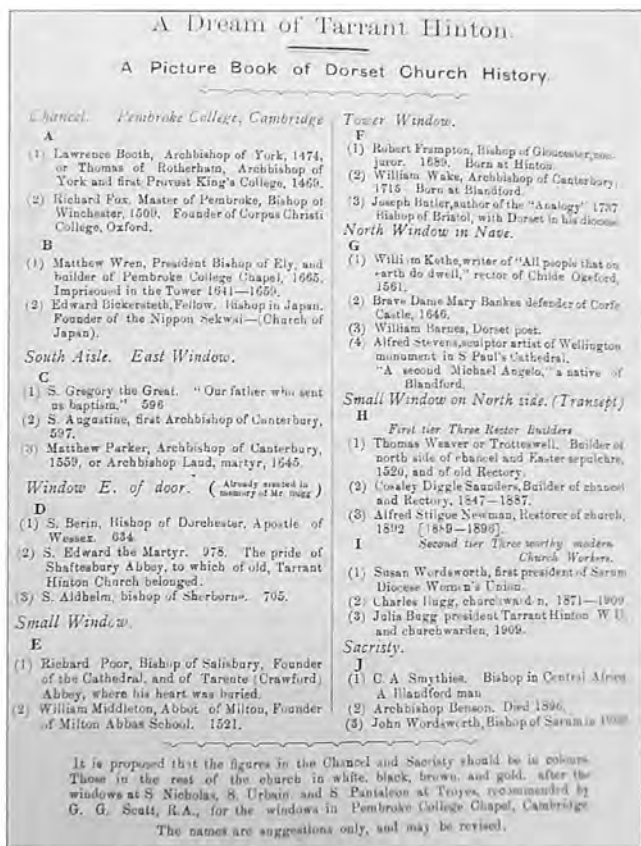 A Dream of Tarrant Hinton.
A Picture Book of Dorset Church History.
Chancel. Pembroke College, Cambridge
A
(1) Lawrence Booth, Archbishop of York, 1474,
or Thomas of Rotherham, Archbishop of
York and first Provost King's College, 1469.
(2) Richard Fox, Master of Pembroke, Bishop of
Winchester, 1509. Founder of Corpus Christi
College, Oxford.
B
(1) Matthew Wren, President Bishop of Ely, and
builder of Pembroke College Chapel, 1665.
Imprisoned in the Tower 1641—1659.
(2) Edward Bickersteth, Fellow. Bishop in Japan.
Founder of the Nippon Sekwai—(Church of
Japan).
South Aisle. East Window.
C
(1) S. Gregory the Great. "Our father who sent
us baptism." 596
(2) S. Augustine, first Archbishop of Canterbury,
597.
(3) Matthew Parker, Archbishop of Canterbury,
1559, or Archbishop Laud, martyr, 1645.
Window E. of door. (Already erected in
memory of Mr. Bugg)
D
(1) S. Berin, Bishop of Dorchester, Apostle of
Wessex. 634
(2) S. Edward the Martyr. 978. The pride of
Shaftesbury Abbey, to which of old, Tarrant
Hinton Church belonged.
(3) S. Aldhelm, bishop of Sherborne. 705.
Small Window.
E
(1) Richard Poor, Bishop of Salisbury, Founder
of the Cathedral, and of Tarente (Crawford)
Abbey, where his heart was buried.
(2) William Middleton, Abbot of Milton, Founder
of Milton Abbas School. 1521.
Tower Window.
F
(1) Robert Frampton, Bishop of Gloucester, non-
juror. 1689. Born at Hinton.
(2) William Wake, Archbishop of Canterbury,
1715 Born at Blandford.
(3) Joseph Butler, author of the "Analogy" 1737
Bishop of Bristol, with Dorset in his diocese.
North Window in Nave.
G
(1) William Kethe, writer of "All people that on
earth do dwell," rector of Childe Okeford,
1561.
(2) Brave Dame Mary Bankes defender of Corfe
Castle, 1646.
(3) William Barnes, Dorset poet.
(4) Alfred Stevens, sculptor artist of Wellington
monument in S Paul's Cathedral.
"A second Michael Angelo," a native of
Blandford.
Small Window on North side. (Transept)
H
First tier Three Rector Builders
(1) Thomas Weaver or Trotteswell. Builder of
north side of chancel and Easter sepulchre,
1520, and of old Rectory.
(2) Diggle Saunders, Builder of chancel
and Rectory, 1847—1887.
(3) Alfred Stilgoe Newman, Restorer of church,
1892 [1889—1896].
I Second tier Three worthy modern
Church Workers.
(1) Susan Wordsworth, first president of Sarum
Diocese Women's Union.
(2) Charles Bugg, churchwarden, 1871—1909
(3) Julia Bugg president Tarrant Hinton W U.
and churchwarden, 1909.
Sacristy.
J
(1) C. A. Smythies. Bishop in Central Africa
A Blandford man
(2) Archbishop Benson. Died 1896.
(3) John Wordsworth, Bishop of Sarum in
It is proposed that the figures in the Chancel and Sacristy should be in colours.
Those in the rest of the church in white, black, brown, and gold, after the
windows at S Nicholas, S. Urbain, and S Pantaleon at Troyes, recommended by
G. G. Scott, R.A., for the windows in Pembroke College Chapel, Cambridge
The names are suggestions only, and may be revised.